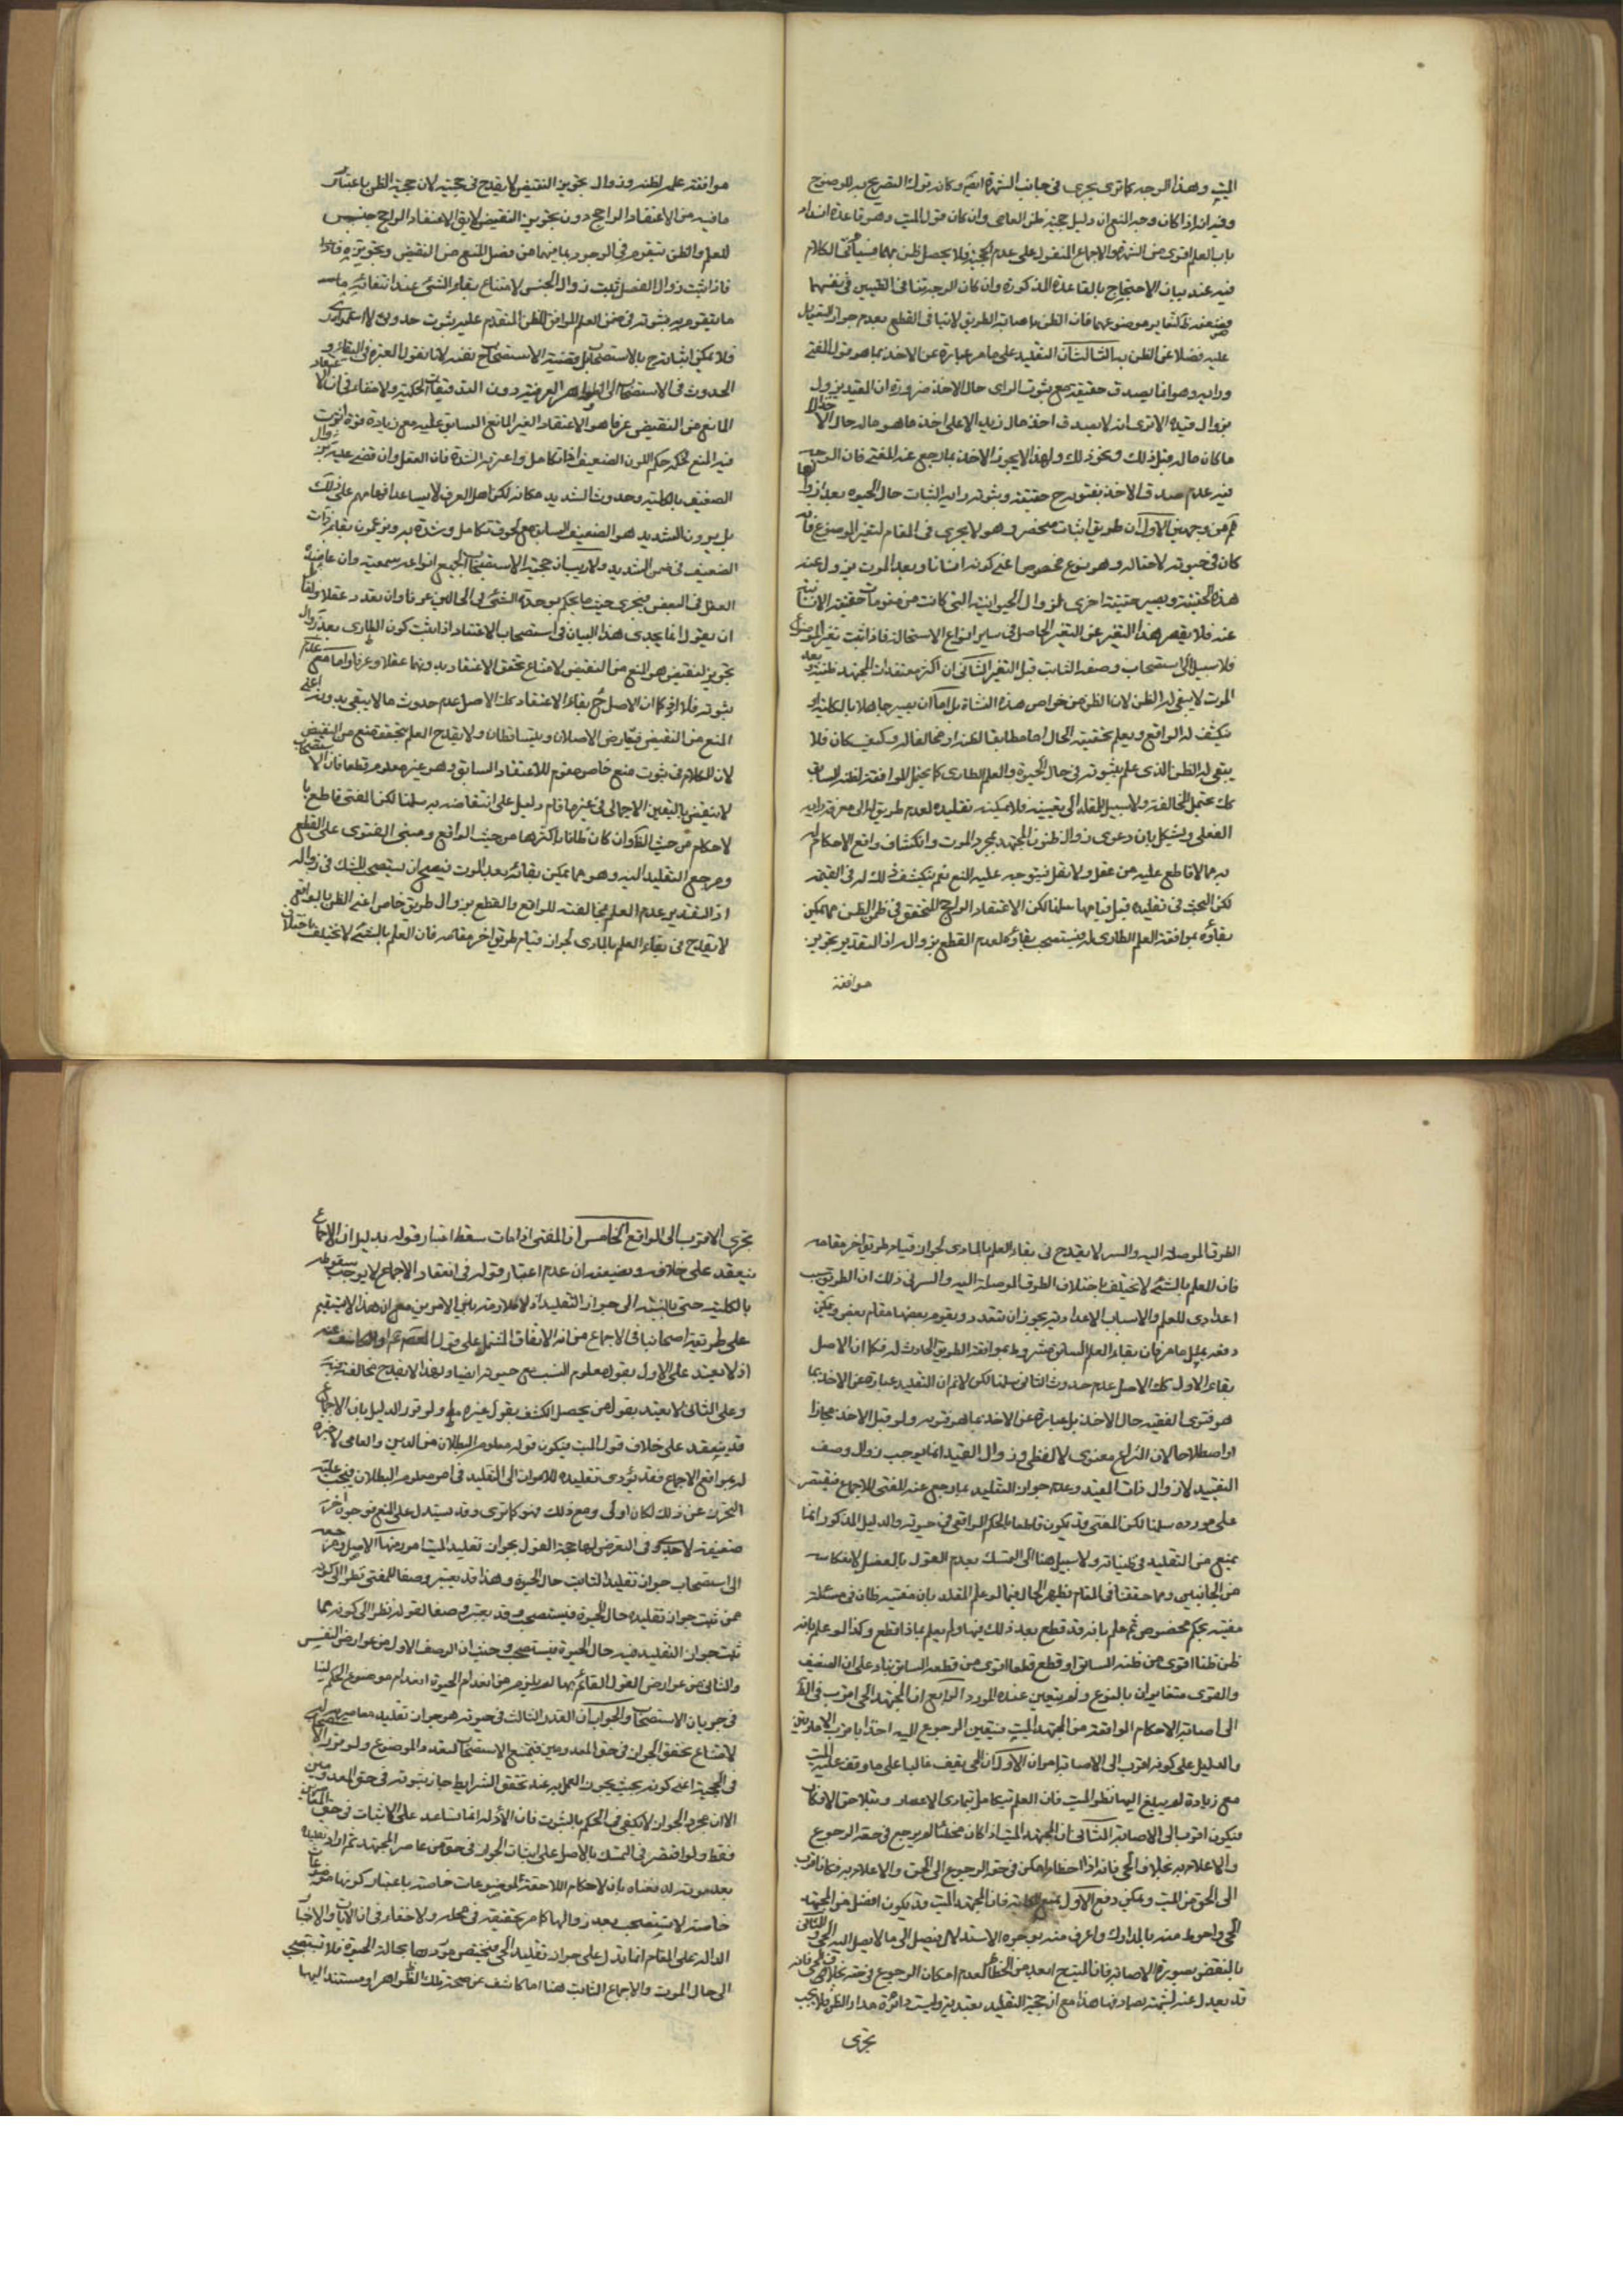 الميت وهذا الوجه كما ترى يجرى فى جانب الشهرة ايضا وكانه ترك التصريح به للوضوح
وفيه انه اذا كان وجه المنع ان دليل حجية ظن العامى وان كان قول الميت وهو قاعدة انسداد
باب العلم اقوى من الشهرة والاجماع المنقول على عدم الحجية فلا يحصل ظن بهما فسيأتى الكلام
فيه عند بيان الاحتجاج بالقاعدة المذكورة وان كان الوجه تنافى الظنيين فى نفسهما
فضعفه ظاهر لتغاير موضوعهما فان الظن باصابة الطريق لا ينافى القطع بعدم جواز التعويل
عليه فضلا عن الظن به الثالث ان التقليد على ما مر عبارة عن الاخذ بما هو قول المفتى
ورايه وهو انما يصدق حقيقة مع ثبوت الراى حال الاخذ ضرورة ان المقيد يزول
بزوال قيده الا ترى انه لا يصدق اخذ مال زيد الا على اخذ ما هو ماله حال الاخذ لا
ما كان ماله قبل ذلك ونحو ذلك ولهذا لا يجوز الاخذ بما رجع عنه المفتى فان الوجه
فيه عدم صدق الاخذ بفتويه ح حقيقة وثبوت رايه الثابت حال الحيوة بعد زوالها
مم من وجهين الاول ان طريق اثباته منحصر وهو لا يجرى فى المقام لتغير الموضوع فانه
كان فى حيوته لاحتماله وهو نوع مخصوص اعنى كونه انسانا وبعد الموت يزول عنه
هذه الحقيقة ويصير حقيقة اخرى لزوال الحيوانية التى كانت من مقومات حقيقته الانسانية
عنه فلا يقصر هذا التغير عن التغير الحاصل فى ساير انواع الاستحالة فاذا ثبت تغير الموضوع
فلا سبيل الى استصحاب وصفه الثابت قبل التغير الثانى ان اكثر معتقدات المجتهد ظنية وبعد
الموت لا يبقى له الظن لان الظن من خواص هذه النشاة بل اما ان يصير جاهلا بالكلية او
ينكشف له الواقع ويعلم بحقيقة الحال اما مطابقا لظنه او مخالفا له وكيف كان فلا
يبقى له الظن الذى علم بثبوته فى حال الحيوة والعلم الطارى كما يحتمل الموافقة لظنه السابق
كك يحتمل المخالفة ولا سبيل للمقلد الى تعيينه فلا يمكنه تقليده لعدم طريق له الى معرفة رايه
الفعلى ويشكل بان دعوى زوال ظنون المجتهد بمجرد الموت وانكشاف واقع الاحكام له
به مما لا قاطع عليه من عقل ولا نقل فيتوجه عليه المنع نعم ينكشف ذلك له فى القيمة
لكن البحث فى تقليده قبل قيامها سلمنا لكن الاعتقاد الراجح المتحقق فى ضمن الظن مما يمكن
بقاؤه بموافقة العلم الطارى له فيستصحب بقاؤه لعدم القطع بزواله اذ التقدير تجويز
موافقة
موافقة علمه لظنه وزوال تجويز النقيض لا يقدح فى حجيته لان حجية الظن باعتبار
ما فيه من الاعتقاد الراجح دون تجويز النقيض لا يق الاعتقاد الراجح جنس
للعلم والظن يتقوم فى الوجود بما فيهما من فصل المنع من النقيض وتجويزه فاذا
فاذا ثبت زوال الفصل ثبت زوال الجنس لامتناع بقاء الشئ عند انتفائه
ما يتقوم به بثبوته فى ضمن العلم الموافق للظن المتقدم عليه بثبوت حدوثه لا استمراره
فلا يمكن اثباته ح بالاستصحاب بل قضية الاستصحاب نفيه لانا نقول العبرة فى البقاء و
الحدوث فى الاستصحاب الى الظواهر العرفية دون التدقيقات الحكمية ولا خفاء فى ان الاعتقاد
المانع من النقيض عرفا هو الاعتقاد الغير المانع السابق عليه مع زيادة قوة اثرت
فيه المنع فحكمه حكم اللون الضعيف اذا تكامل واعترته الشدة فان العقل وان قضى عليه بزوال
الضعيف بالكلية وحدوث الشديد مكانه لكن اهل العرف لا يساعد افهامهم على ذلك
بل يرون الشديد هو الضعيف السابق مع لحوق تكامل وشدة به ويزعمون بقاء ذات
الضعيف فى ضمن الشديد ولا ريب ان حجية الاستصحاب لجميع انواعه سمعية وان عاضده
العقل فى البعض فيجرى حيث ما يحكم بوحدة الشئ فى الحالين عرفا وان تعدد عقلا ولقائل
ان يقول انما يجدى هذا البيان فى استصحاب الاعتقاد اذا ثبت كون الطارى بعد زوال
تجويز النقيض هو المنع من النقيض لامتناع تحقق الاعتقاد بدونهما عقلا وعرفا واما مع عدم
ثبوته فلا اذ كما ان الاصل ح بقاء الاعتقاد كك الاصل عدم حدوث ما لا يبقى بدونه اعنى
المنع من النقيض فيتعارض الاصلان ويتساقطان ولا يقدح العلم بتحقق منع من النقيض
لان الكلام فى ثبوت منع خاص مقوم للاعتقاد السابق وهو غير معلوم قطعا فان الاستصحاب
لا ينقض باليقين الاجمالى فى غير ما قام دليل على انتقاضه به سلمنا لكن المفتى قاطع با
لاحكام من حيث الظ وان كان ظانا باكثرها من حيث الواقع ومبنى الفتوى على القطع
ومرجع التقليد اليه وهو مما يمكن بقائه بعد الموت فيصح ان يستصحب للشك فى زواله
اذ التقدير عدم العلم بمخالفته للواقع والقطع بزوال طريق خاص اعنى الظن بالواقع
لا يقدح فى بقاء العلم بالمؤدى لجواز قيام طريق اخر مقامه فان العلم بالشئ لا يختلف باختلاف
الطرق الموصلة اليه والسر لا يقدح فى بقاء العلم بالمؤدى لجواز قيام طريق اخر مقامه
فان العلم بالشئ لا يختلف باختلاف الطرق الموصلة اليه والسر فى ذلك ان الطريق سبب
اعدادى للعلم والاسباب الاعدادية يجوز ان تتعدد ويقوم بعضها مقام بعض ويمكن
دفعه بمثل ما مر فان بقاء العلم السابق مشروط بموافقة الطريق الحادث له فكما ان الاصل
بقاء الاول كك الاصل عدم حدوث الثانى سلمنا لكن لا نم ان التقليد عبارة عن الاخذ بما
هو فتوى الفقيه حال الاخذ بل عبارة عن الاخذ بما هو فتويه ولو قبل الاخذ مجازا
او اصطلاحا لان النزاع معنوى لا لفظى وزوال القيد انما يوجب زوال وصف
التقييد لا زوال ذات المقيد وعدم جواز التقليد بما رجع عنه المفتى للاجماع فيقتصر
على مورده سلمنا لكن المفتى قد يكون قاطعا بالحكم الواقعى فى حيوته والدليل المذكور انما
يمنع من التقليد فى ظنياته ولا سبيل هنا الى التمسك بعدم القول بالفصل لانعكاسه
من الجانبين ومما حققنا فى المقام يظهر الحال فيما لو علم المقلد بان مفتيه ظان فى مسئلة
مفتيه بحكم مخصوص ثم علم بانه قد قطع بعد ذلك فيها ولم يعلم بماذا قطع وكذا لو علم بانه
ظن ظنا اقوى من ظنه السابق او قطع قطعا اقوى من قطعه السابق بناء على ان الضعيف
والقوى متغايران بالنوع ولم يتعين عنده المورد الرابع ان المجتهد الحى اقرب فى الظ
الى اصابة الاحكام الواقعية من المجتهد الميت فيتعين الرجوع اليه اخذا باقرب الامارتين
والدليل على كونه اقرب الى الاصابة امران الاول ان الحى يقف غالبا على ما وقف عليه الميت
مع زيادة لم يبلغ اليها نظر الميت فان العلم يتكامل بتمادى الاعصار وبتلاحق الافكار
فيكون اقرب الى الاصابة الثانى ان المجتهد الميت اذا كان مخطئا لم يرجع فى حقه الرجوع
والاعلام به بخلاف الحى فانه اذا اخطا امكن فى حقه الرجوع الى الحق والاعلام به فكان اقرب
الى الحق من الميت ويمكن دفع الاول بمنع فان المجتهد الميت قد يكون افضل من المجتهد
الحى واحوط منه بالمدارك واعرف منه بوجوه الاستدلال فيصل الى ما لا يصل اليه الحى والثانى
بالنقض بصورة الاصابة فان الميت ح ابعد من الخطاء لعدم امكان الرجوع فى حقه بخلاف الحى فانه
قد يعدل عنه لشبهة يصادفها هذا مع ان حجية التقليد تعبدية وليست دائرة مدار الظن فلا يجب
تحرى
تحرى الاقرب الى الواقع الخامس ان المفتى اذا مات سقط اعتبار قوله بدليل ان الاجماع
ينعقد على خلافه ويضعف بان عدم اعتبار قوله فى انعقاد الاجماع لا يوجب سقوطه
بالكلية حتى بالنسبة الى جواز التقليد اذ لا ملازمة بين الامرين مع ان هذا لا يستقيم
على طريقة اصحابنا فى الاجماع من انه الاتفاق المشتمل على قول المعصوم او الكاشف عنه
اذ لا يعتد على الاول بقول معلوم النسب مع حيوته ايضا ولهذا لا يقدح مخالفته فيه
وعلى الثانى لا يعتد بقول من يحصل الكشف بقول غيره ولو قرر الدليل بان الاجماع
قد ينعقد على خلاف قول الميت فيكون قوله معلوم البطلان من الدين والعامى لا خبرة
له بمواقع الاجماع فقد يؤدى تقليده للاموات الى التقليد فى امر معلوم البطلان فيجب عليه
التحرز عن ذلك لكان اولى ومع ذلك فهو كما ترى وقد يستدل على المنع بوجوه اخر
ضعيفة لا جدوى فى التعرض لها حجة القول بجواز تقليد الميت امور منها الاصل ومرجعه
الى استصحاب جواز تقليده الثابت حال الحيوة وهذا قد يعتبر وصفا للمفتى نظرا الى كونه
ممن ثبت جواز تقليده حال الحيوة فيستصحب وقد يعتبر وصفا لقوله نظرا الى كونه مما
ثبت جواز التقليد فيه حال الحيوة فيستصحب وحيث ان الوصف الاول من عوارض النفس
والثانى من عوارض القول القائم بها لم يلزم من انعدام الحيوة انعدام موضوع الحكم لينا
فى جريان الاستصحاب والجواب ان القدر الثابت فى حيوته هو جواز تقليد معاصريه له
لامتناع تحقق الجواز فى حق المعدومين فيمتنع الاستصحاب لتعدد الموضوع ولو قرر الاستصحاب
فى الحجية اعنى كونه بحيث يجوز العمل به عند تحقق الشرايط جاز ثبوته فى حق المعدومين
الا ان مجرد الجواز لا يكفى فى الحكم بالثبوت فان الأدلة انما تساعد على الاثبات فى حق المعاصرين
فقط ولو اقتصر فى التمسك بالاصل على اثبات الجواز فى حق من عاصر المجتهد ثم اراد تقليده
بعد موته دفعناه بان الاحكام اللاحقة لموضوعات خاصة باعتبار كونها موضوعات
خاصة لا يستصحب بعد زوالها كما مر تحقيقه فى محله ولا خفاء فى ان الآيات والاخبار
الدالة على المقام انما تدل على جواز تقليد الحى فيختص موردها بحالة الحيوة فلا تستصحب
الى حال الموت والاجماع الثابت هنا اما كاشف عن صحة تلك الظواهر او مستند اليها